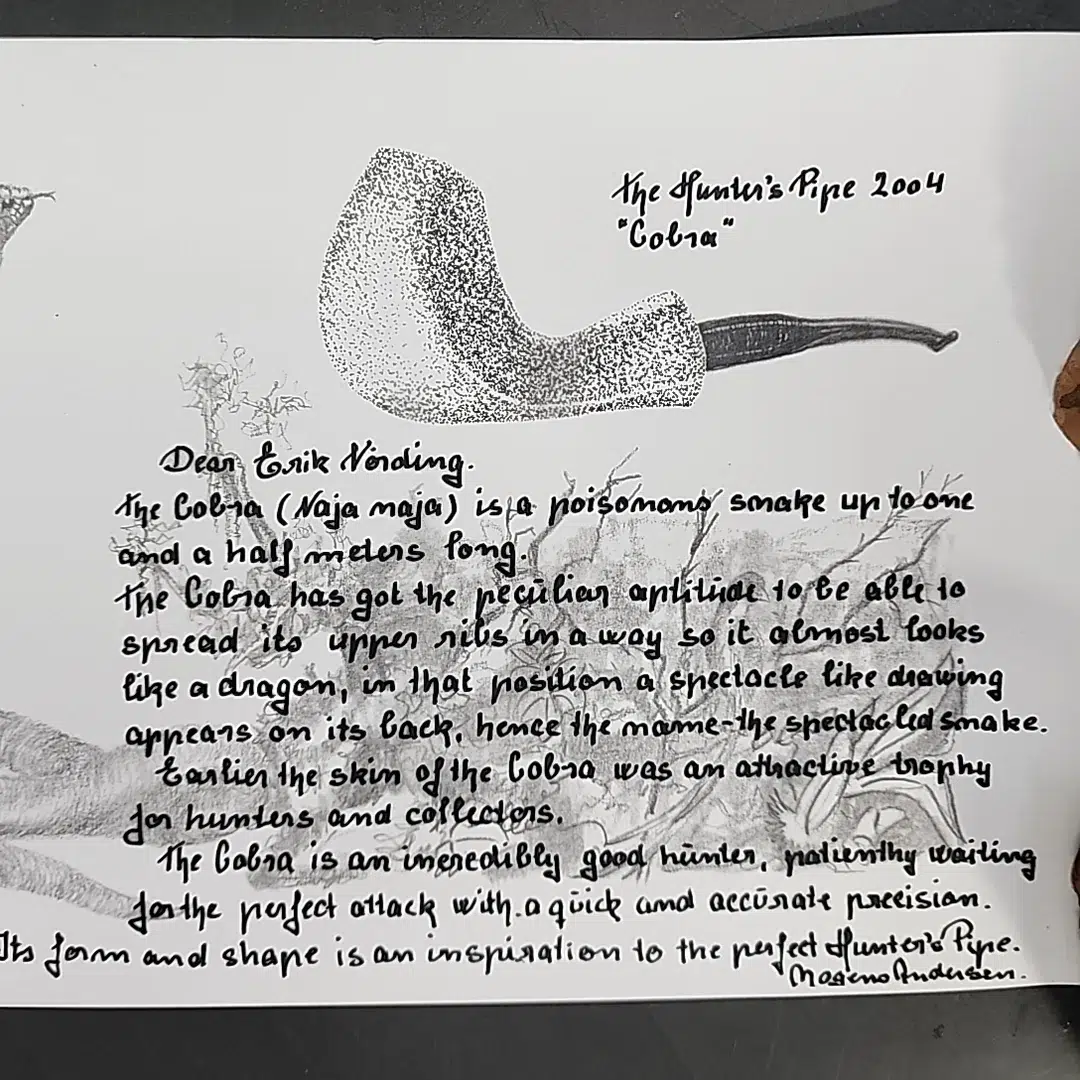 The Hunter's Pipe 2004
"Cobra"
Dear Erik Nørding.
The Cobra (Naja naja) is a poisonous snake up to one
and a half meters long.
The Cobra has got the peculiar aptitude to be able to
spread its upper ribs in a way so it almost looks
like a dragon, in that position a spectacle like drawing
appears on its back, hence the name-the spectacled snake.
Earlier the skin of the Cobra was an attractive trophy
for hunters and collectors.
The Cobra is an incredibly good hunter, patiently waiting
for the perfect attack with a quick and accurate precision.
Its form and shape is an inspiration to the perfect Hunter's Pipe.
Mogens Andersen.